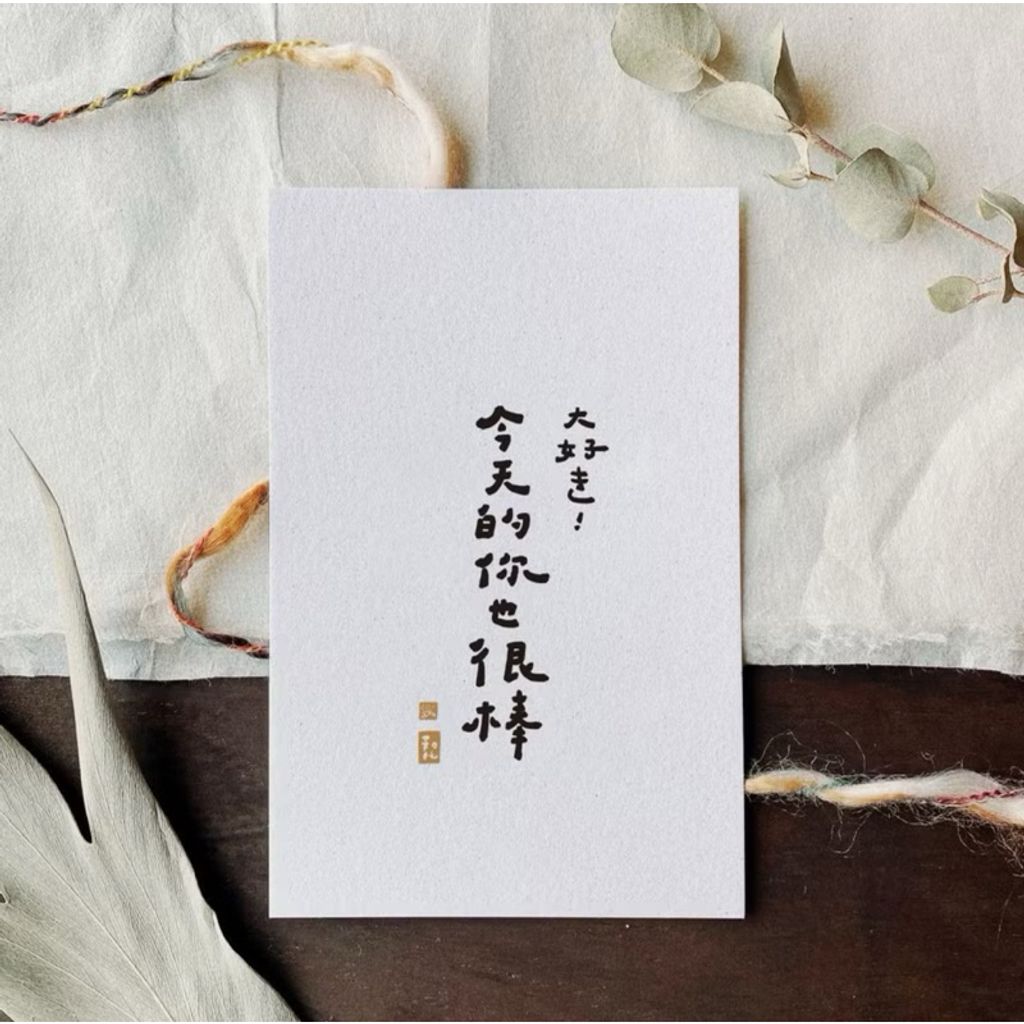 大好き!
今天的你也很棒